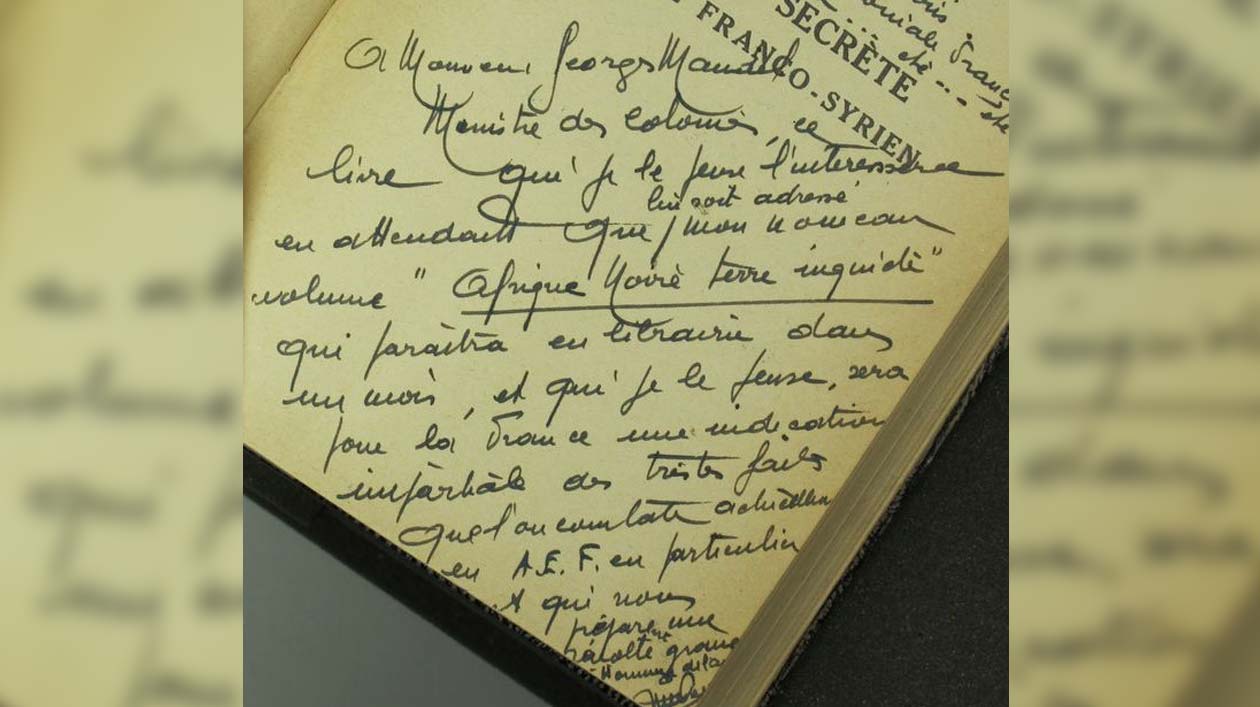 SECRÈTE
FRANCO-SYRIEN
A Monsieur Georges Mandel
Ministre des Colonies, ce
livre qui je le pense l'interessera
lui soit adressé
en attendant que mon nouveau
volume "Afrique Noire terre inquiète"
qui paraîtra en librairie dans
un mois, et qui je le pense, sera
pour la France une indication
impartiale des tristes faits
que l'on constate actuellem
en A.E.F. en particulier
et qui nous
prépare une
récolte
Hommage